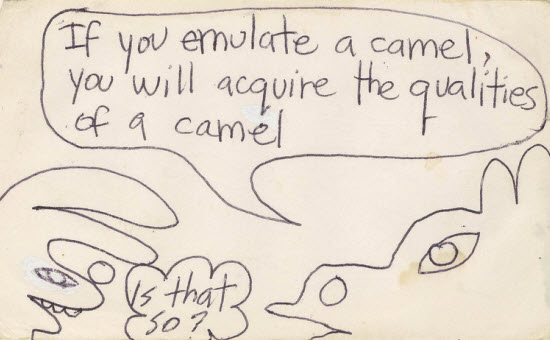 If you emulate a camel,
you will acquire the qualities
of a camel
Is that
so?